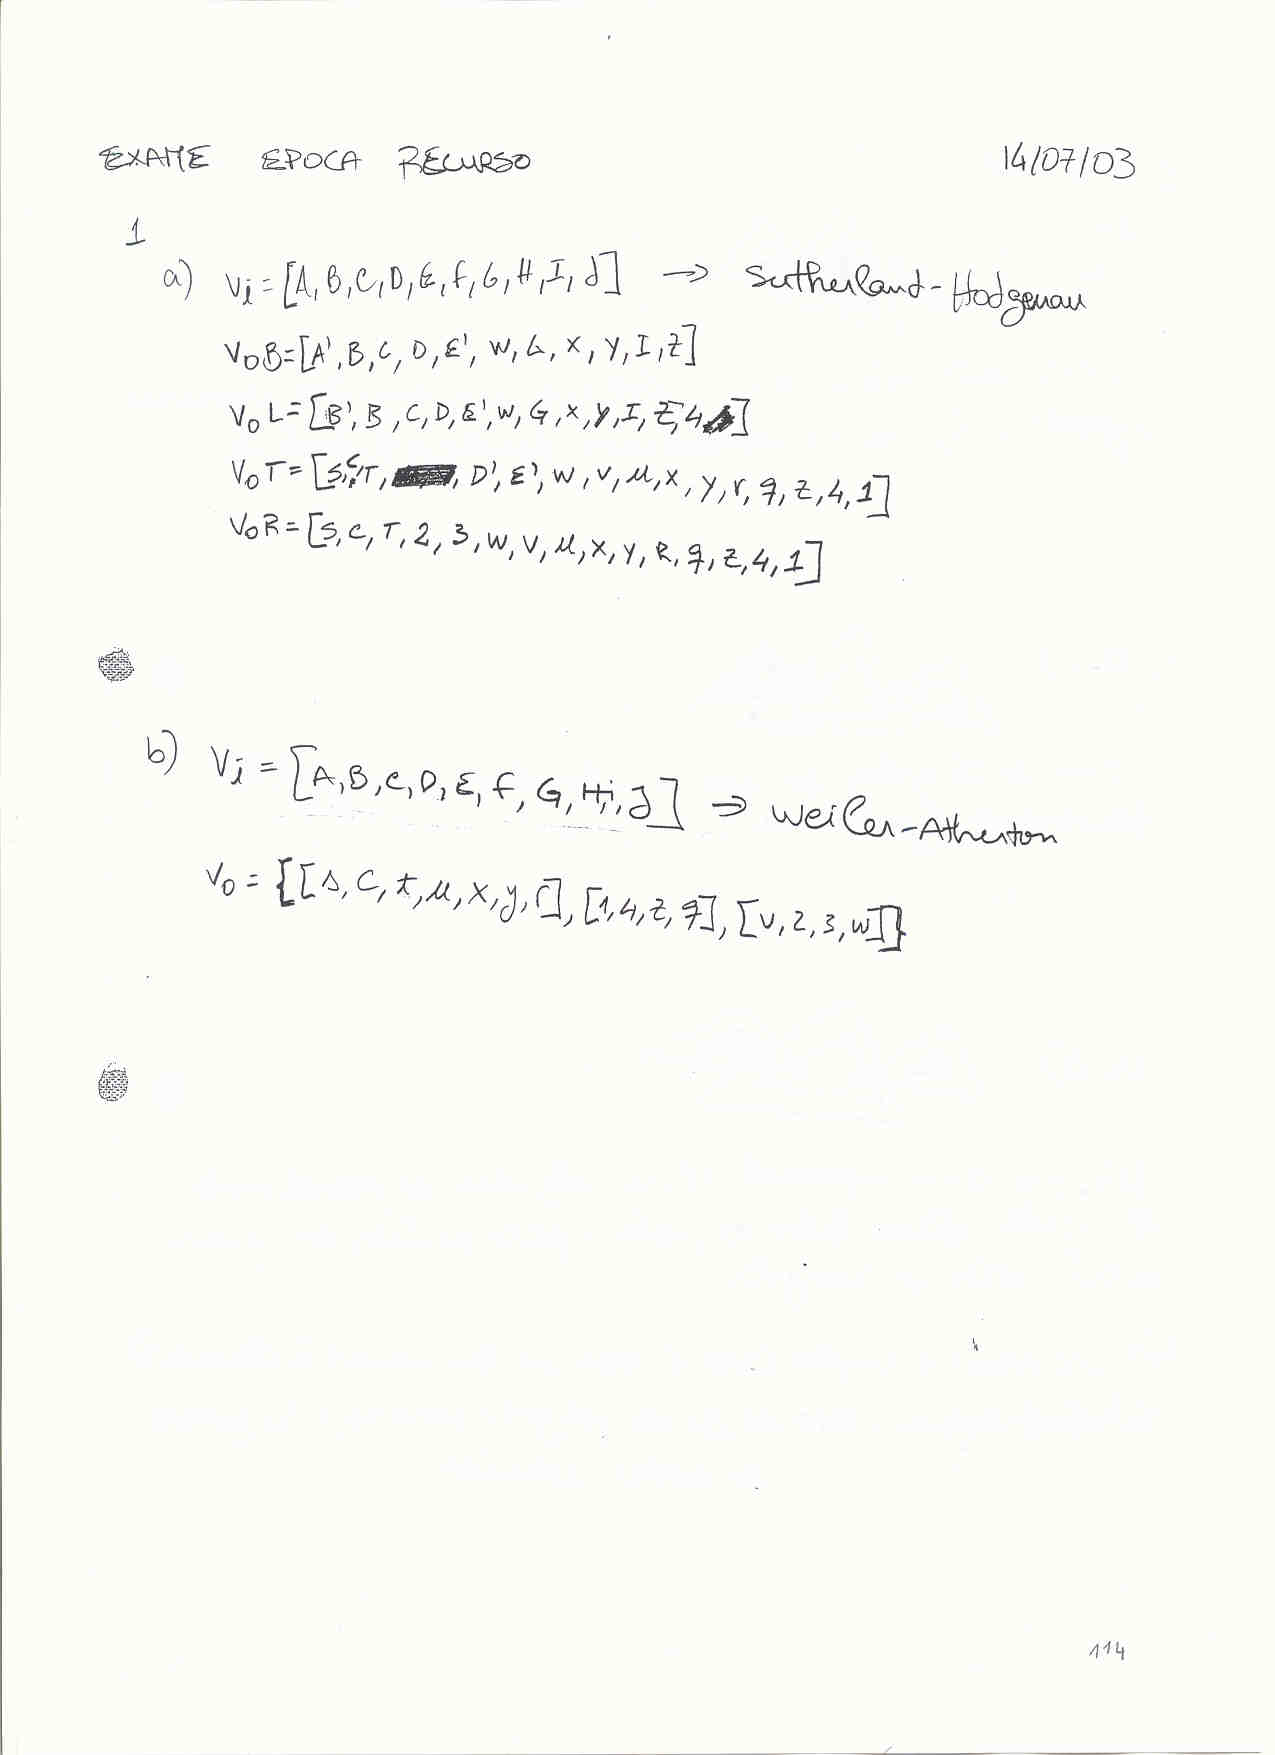 EXAME EPOCA RECURSO 14/07/03
1
a) Vi = [A, B, C, D, E, F, G, H, I, J] → Sutherland-Hodgeman
VoB = [A', B, C, D, E', W, G, X, Y, I, Z]
VoL = [B', B, C, D, E', W, G, X, Y, I, Z, 4]
VoT = [S, C, T, D', E', W, V, U, X, Y, r, q, Z, 4, 1]
VoR = [S, C, T, 2, 3, W, V, U, X, Y, R, q, Z, 4, 1]
b) Vi = [A, B, C, D, E, F, G, H, i, J] ⇒ Weiler-Atherton
Vo = {[s, C, t, u, x, y, r], [1, 4, z, q], [v, 2, 3, w]}
114